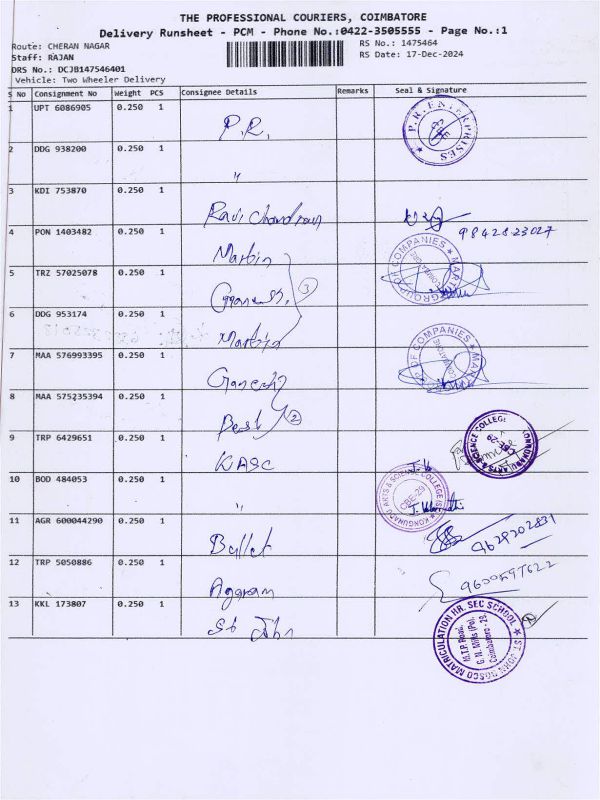 THE PROFESSIONAL COURIERS, COIMBATORE
Delivery Runsheet - PCM - Phone No.:0422-3505555 - Page No.:1
Route: CHERAN NAGAR
RS No.: 1475464
Staff: RAJAN
RS Date: 17-Dec-2024
DRS No.: DCJB147546401
Vehicle: Two Wheeler Delivery
S No Consignment No Weight PCS Consignee Details Remarks Seal & Signature
1 UPT 6086905 0.250 1 P.R. P.R. ENTERPRISES
2 DDG 938200 0.250 1 "
3 KDI 753870 0.250 1 Ravi Chandran
98428-23027
4 PON 1403482 0.250 1 Martin MARTIN GROUP OF COMPANIES COIMBATORE
5 TRZ 57025078 0.250 1 Ganesh. 3
6 DDG 953174 0.250 1 Martin OF COMPANIES COIMBATORE
7 MAA 576993395 0.250 1 Ganesh
8 MAA 575235394 0.250 1 Best 2
9 TRP 6429651 0.250 1 KASC & SCIENCE COLLEGE
10 BOD 484053 0.250 1 " KONGUNADU ARTS & SCIENCE COLLEGE CBE-29
11 AGR 600044290 0.250 1 Bullet 9629202831
12 TRP 5050886 0.250 1 Agaram 9600597622
13 KKL 173807 0.250 1 St John ST. JOHN BOSCO MATRICULATION HR. SEC SCHOOL
M.T.P. Road,
G.N. Mills (Po),
Coimbatore - 29.